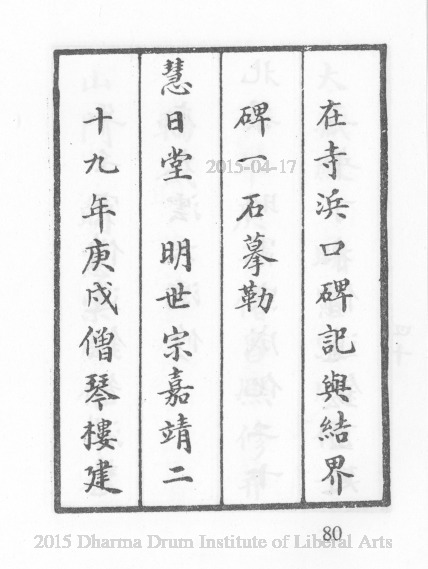 在寺浜口碑記與結界
碑一石摹勒
慧日堂　明世宗嘉靖二
十九年庚戌僧琴樓建
2015-04-17
80
2015 Dharma Drum Institute of Liberal Arts